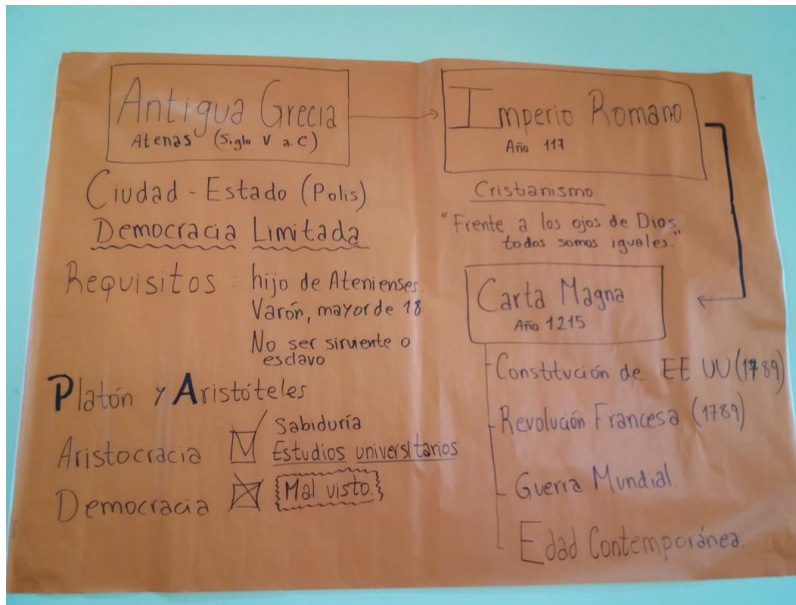 Antigua Grecia
Atenas (Siglo V a.C)
Ciudad - Estado (Polis)
Democracia Limitada
Requisitos : hijo de Atenienses.
Varón, mayor de 18
No ser sirviente o
esclavo
Platón y Aristóteles
Aristocracia
Sabiduría
Estudios universitarios
Democracia
Mal visto.
Imperio Romano
Año 117
Cristianismo.
"Frente a los ojos de Dios,
todos somos iguales."
Carta Magna
Año 1215
Constitución de EE UU (1789)
Revolución Francesa (1789)
Guerra Mundial
Edad Contemporánea.